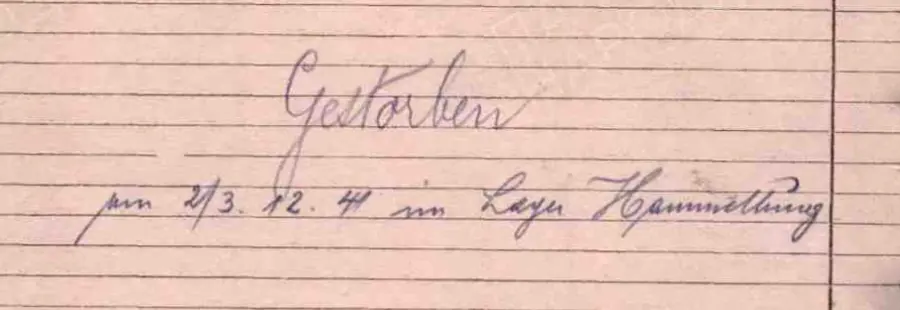 Gestorben
am 2/3. 12. 41 im Lager Hammelburg